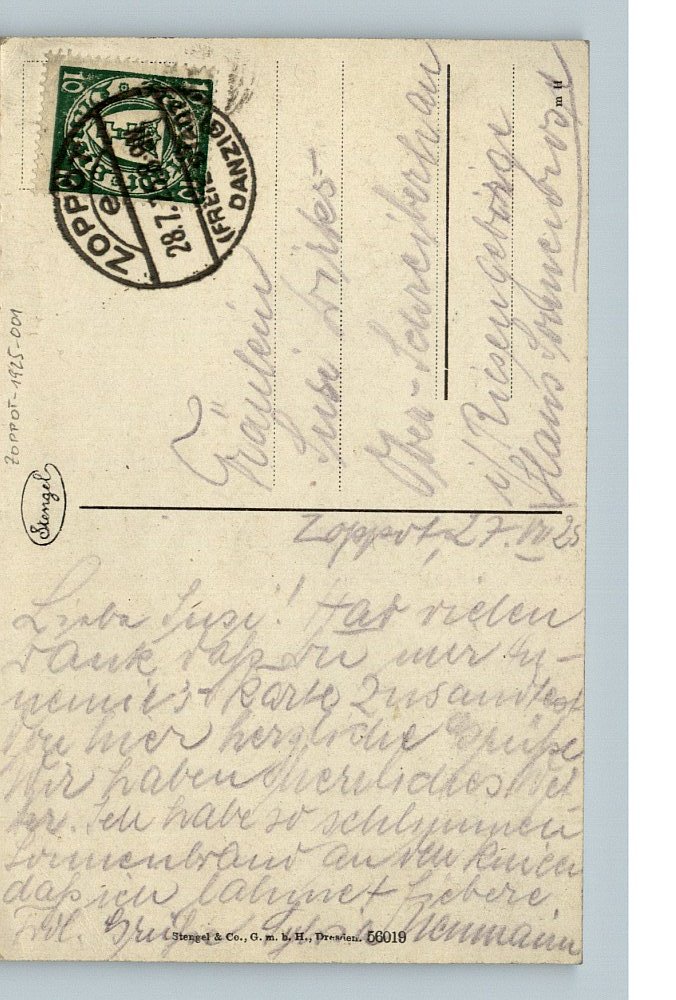 10
ZOPPOT
e
28.7.
(FREIE STADT
DANZIG)
m H
Fräulein
Susi Dirks
Ober-Schreiberhau
i/Riesengebirge
Haus Sonnenbrost
ZOPPOT-1925-001
Stengel
Zoppot, 27. VII 25
Liebe Susi! Hab vielen
Dank daß Du mir
karte zusandtest
hier herzliche Grüße
Wir haben herrliches Wet-
ter. Ich habe so schlimmen
Sonnenbrand an den Knien
daß ich lahme + fiebere
Frdl. Grüße Neumann
Stengel & Co., G. m. b. H., Dresden. 56019